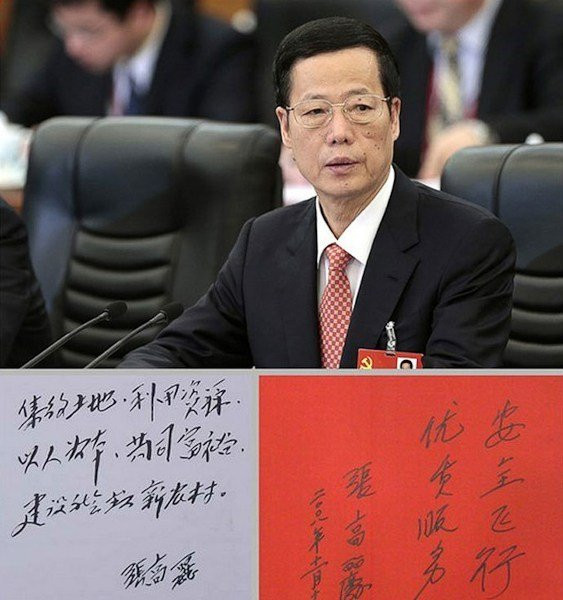 集约土地，利用资源，
以人为本，共同富裕，
建设社会主义新农村。
張高麗
安全飞行
优质服务
張高麗
二〇〇八年